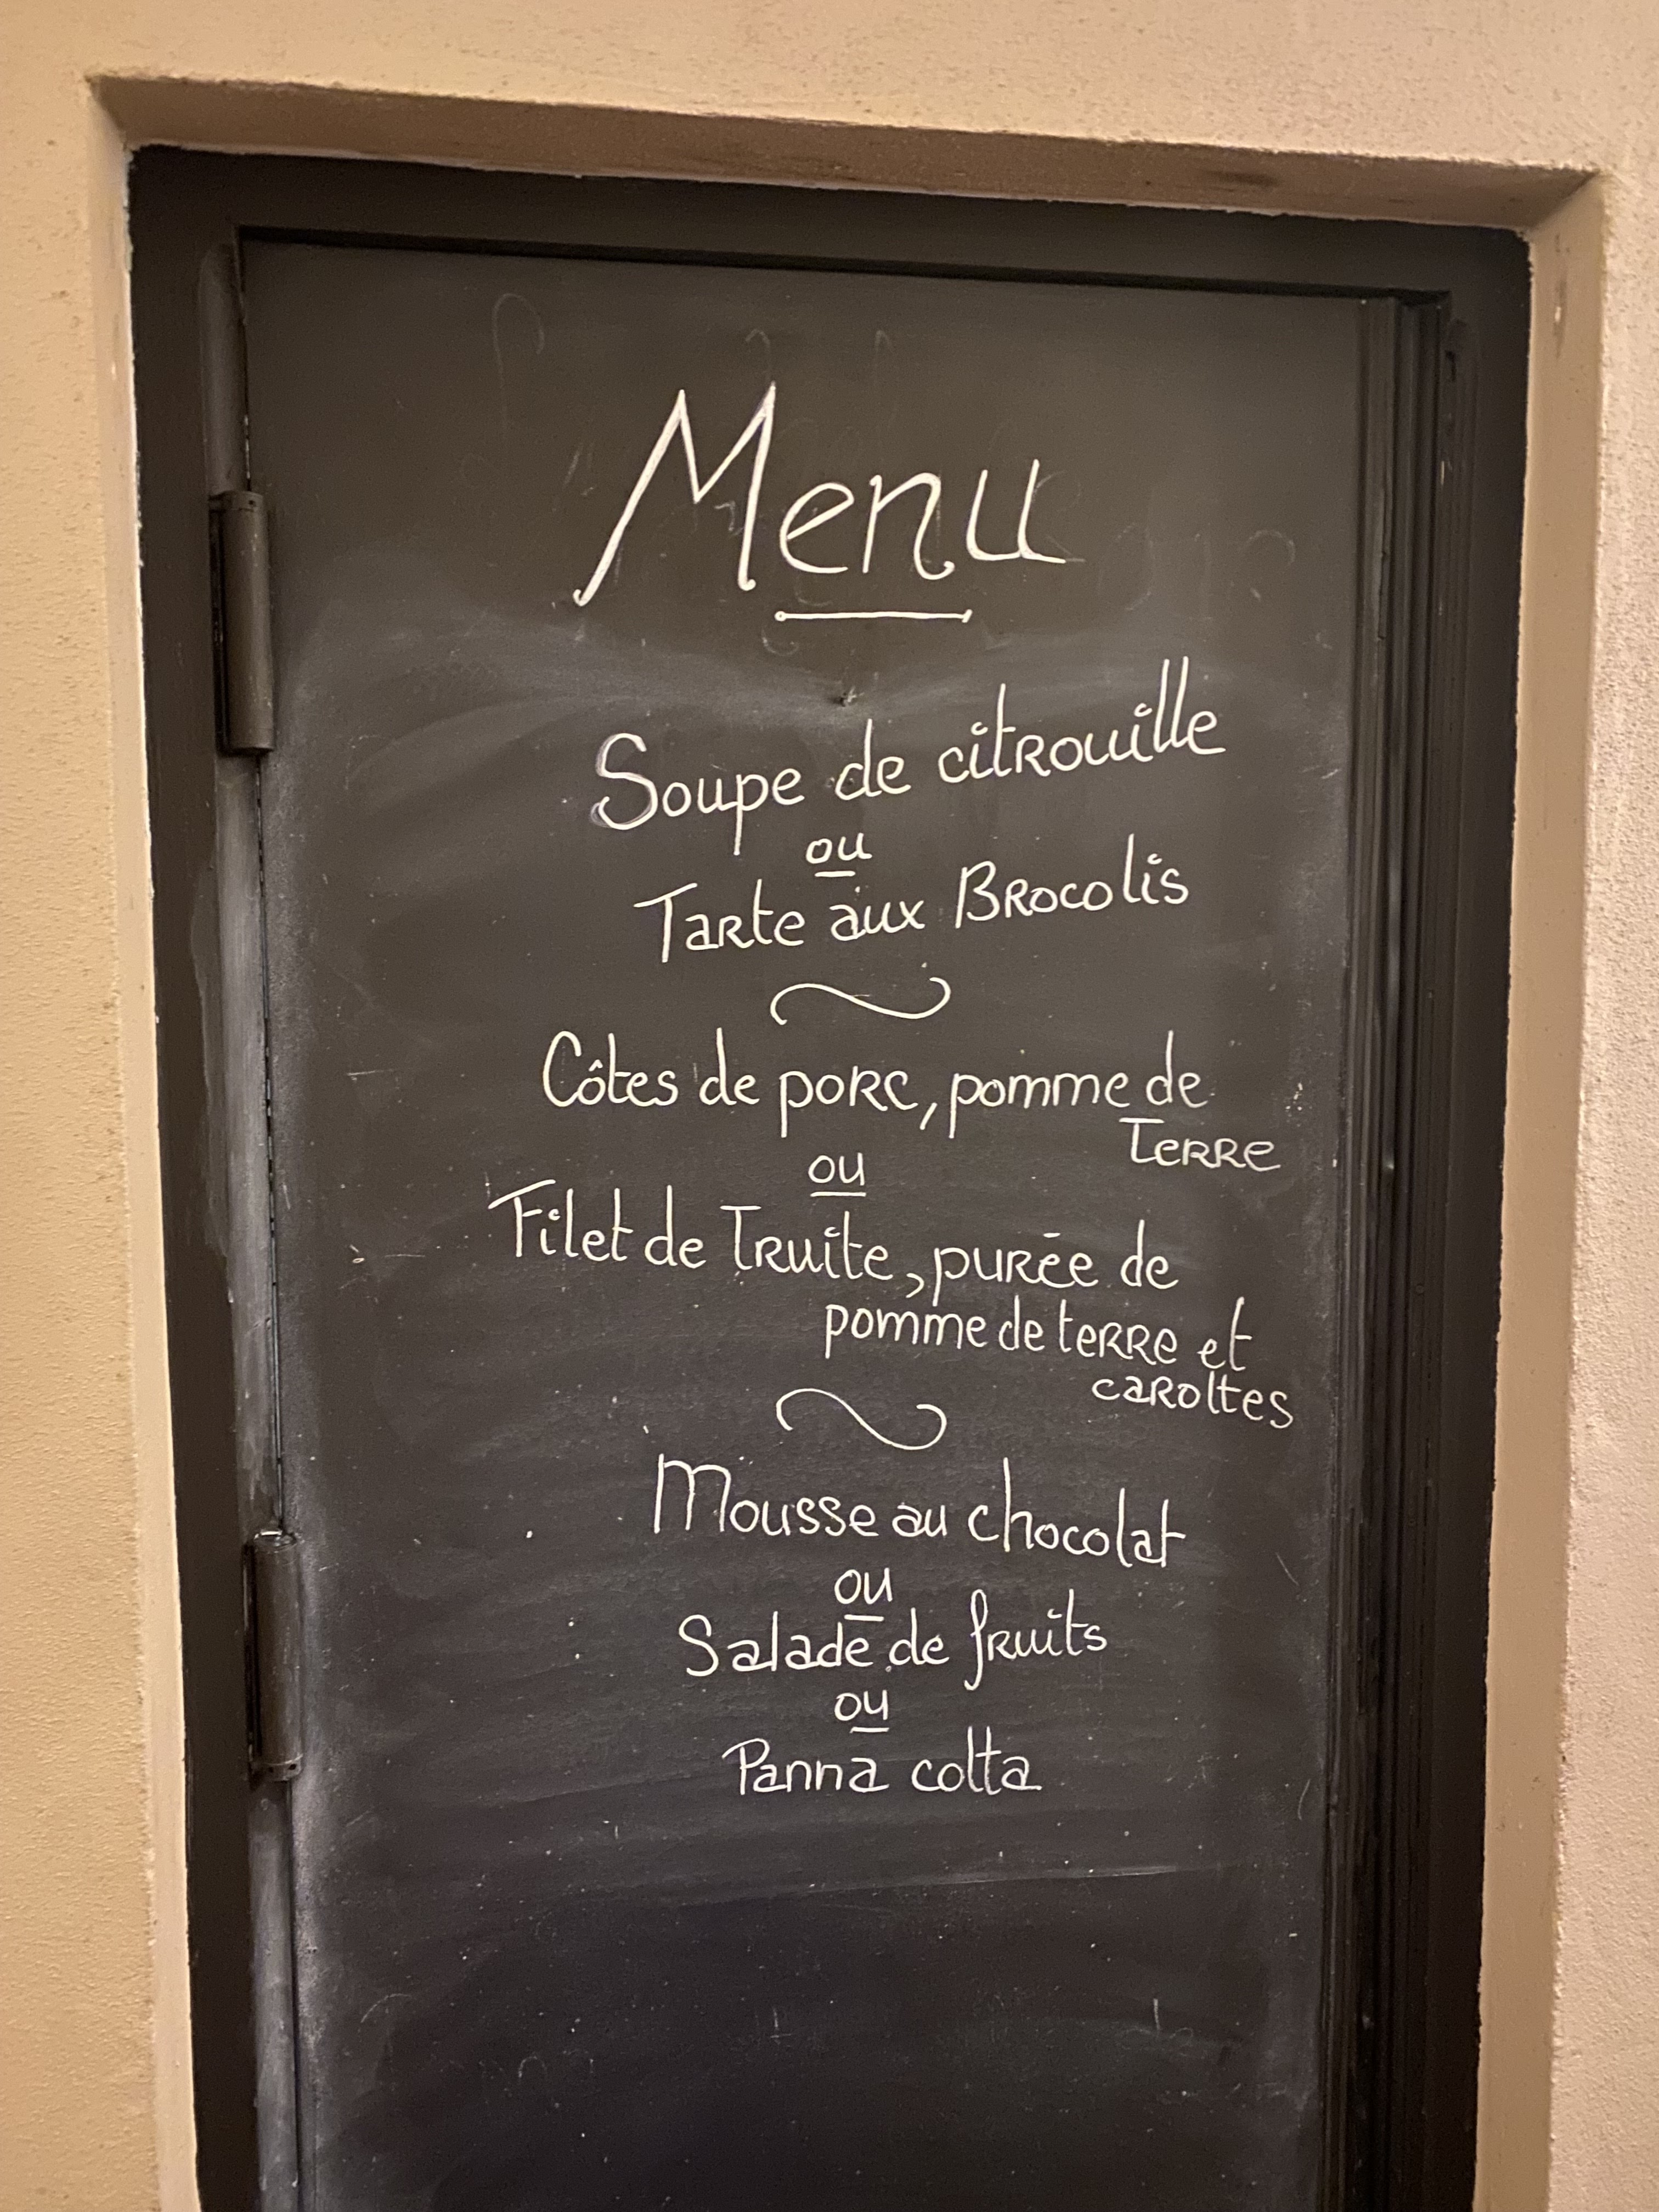 Menu
Soupe de citrouille
ou
Tarte aux Brocolis
Côtes de porc, pomme de
Terre
ou
Filet de Truite, purée de
pomme de terre et
carottes
Mousse au chocolat
ou
Salade de fruits
ou
Panna cotta